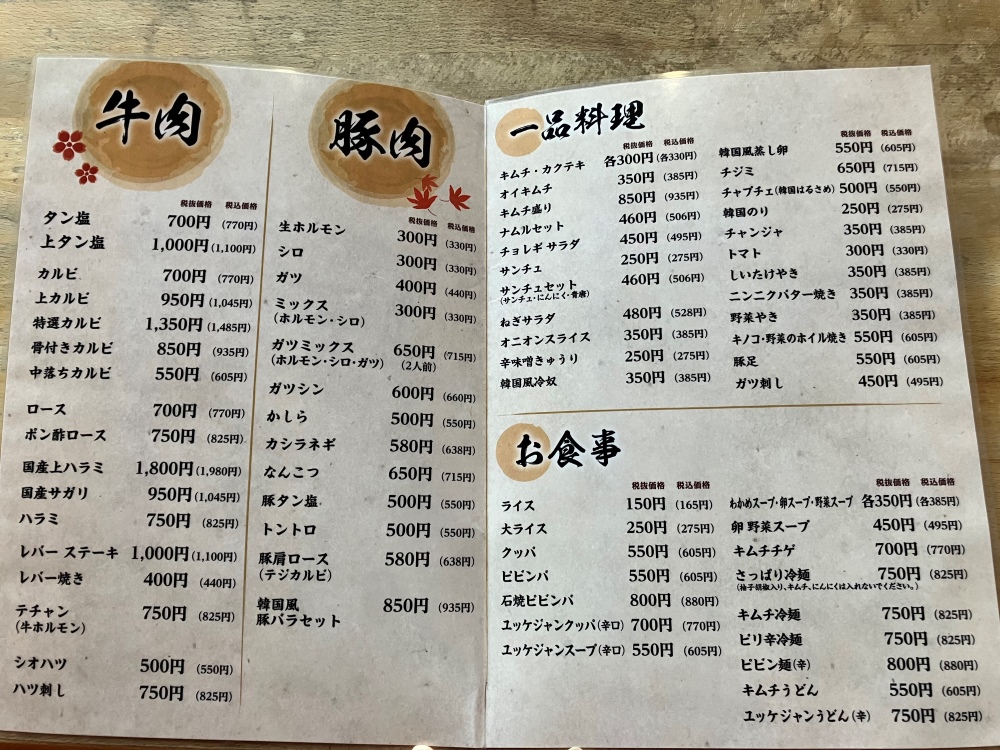 牛肉
税抜価格 税込価格
タン塩 700円 (770円)
上タン塩 1,000円 (1,100円)
カルビ 700円 (770円)
上カルビ 950円 (1,045円)
特選カルビ 1,350円 (1,485円)
骨付きカルビ 850円 (935円)
中落ちカルビ 550円 (605円)
ロース 700円 (770円)
ポン酢ロース 750円 (825円)
国産上ハラミ 1,800円 (1,980円)
国産サガリ 950円 (1,045円)
ハラミ 750円 (825円)
レバー ステーキ 1,000円 (1,100円)
レバー焼き 400円 (440円)
テチャン 750円 (825円)
(牛ホルモン)
シオハツ 500円 (550円)
ハツ刺し 750円 (825円)
豚肉
税抜価格 税込価格
生ホルモン 300円 (330円)
シロ 300円 (330円)
ガツ 400円 (440円)
ミックス 300円 (330円)
(ホルモン・シロ)
ガツミックス 650円 (715円)
(ホルモン・シロ・ガツ) (2人前)
ガツシン 600円 (660円)
かしら 500円 (550円)
カシラネギ 580円 (638円)
なんこつ 650円 (715円)
豚タン塩 500円 (550円)
トントロ 500円 (550円)
豚肩ロース 580円 (638円)
(テジカルビ)
韓国風 850円 (935円)
豚バラセット
一品料理
税抜価格 税込価格
キムチ・カクテキ 各300円 (各330円)
オイキムチ 350円 (385円)
キムチ盛り 850円 (935円)
ナムルセット 460円 (506円)
チョレギ サラダ 450円 (495円)
サンチュ 250円 (275円)
サンチュセット 460円 (506円)
(サンチュ・にんにく・青唐)
ねぎサラダ 480円 (528円)
オニオンスライス 350円 (385円)
辛味噌きゅうり 250円 (275円)
韓国風冷奴 350円 (385円)
税抜価格 税込価格
韓国風蒸し卵 550円 (605円)
チジミ 650円 (715円)
チャプチェ(韓国はるさめ) 500円 (550円)
韓国のり 250円 (275円)
チャンジャ 350円 (385円)
トマト 300円 (330円)
しいたけやき 350円 (385円)
ニンニクバター焼き 350円 (385円)
野菜やき 350円 (385円)
キノコ・野菜のホイル焼き 550円 (605円)
豚足 550円 (605円)
ガツ刺し 450円 (495円)
お食事
税抜価格 税込価格
ライス 150円 (165円)
大ライス 250円 (275円)
クッパ 550円 (605円)
ビビンバ 550円 (605円)
石焼ビビンバ 800円 (880円)
ユッケジャンクッパ(辛口) 700円 (770円)
ユッケジャンスープ(辛口) 550円 (605円)
税抜価格 税込価格
わかめスープ・卵スープ・野菜スープ 各350円 (各385円)
卵 野菜スープ 450円 (495円)
キムチチゲ 700円 (770円)
さっぱり冷麺 750円 (825円)
(柚子胡椒入り、キムチ、にんにくは入れないでください。)
キムチ冷麺 750円 (825円)
ピリ辛冷麺 750円 (825円)
ビビン麺(辛) 800円 (880円)
キムチうどん 550円 (605円)
ユッケジャンうどん(辛) 750円 (825円)